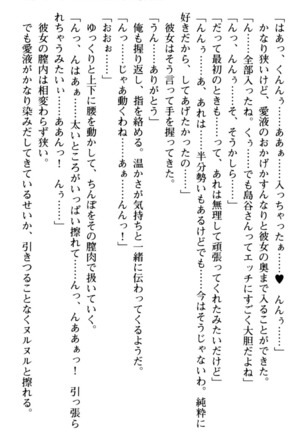 「はあっ、くんんぅ……ああぁ……入っちゃったぁ……♥」
かなり狭いけど、愛液のおかげかすんなりと彼女の奥まで入ることができた。
「ん……全部入ったね。くぅ……でも島谷さんってエッチにすごく大胆だよね」
「んっ、んんぅ……そ、そうかしら……」
「だって最初のときも……って、あれは無理して頑張ってくれたみたいだけど」
「んんぅ……あ、あれは……半分勢いもあるけど……今はそうじゃないわ。純粋に
好きだから、してあげたかったの……」
彼女はそう言って手を握ってきた。
「うん……ありがとう」
俺も握り返し、指を絡める。温かさが気持ちと一緒に伝わってくるようだ。
「んんぅ……じゃあ動くわね……あぁ……んんっ！」
「おおぉ……」
ゆっくりと上下に腰を動かして、ちんぽをその膣肉で扱いていく。
「んっ、んはぁ……太いところがいっぱい擦れて……んっ、んああぁっ！　引っ張ら
れちゃうみたい……ああんっ！　んぅ……」
彼女の膣内は相変わらず狭い。
でも愛液がかなり染みだしてきているせいか、引きつることなくヌルヌルと擦れる。